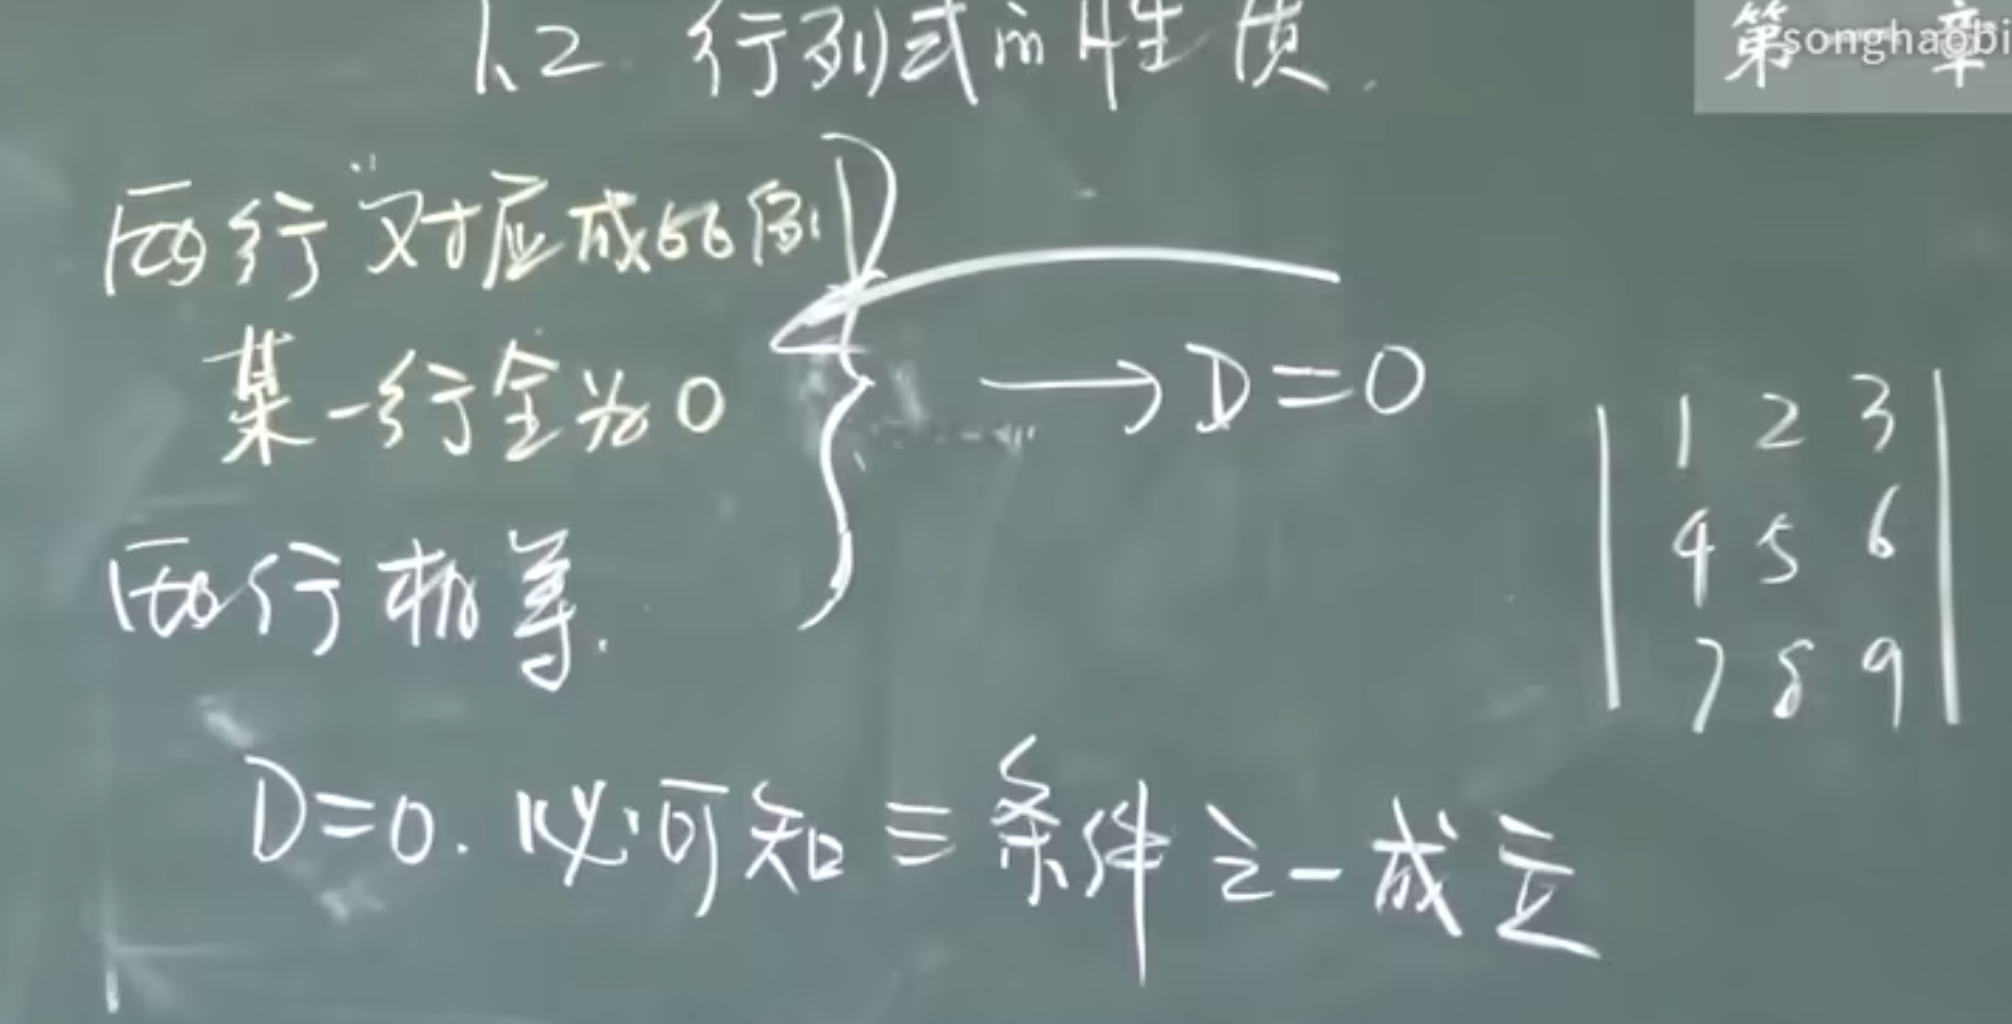 1.2 行列式的性质.
第一章
songhaobi
两行"对应成比例
某一行全为0
两行相等.
D
→D=0
1 2 3
4 5 6
7 8 9
D=0. 必可知三条件之一成立